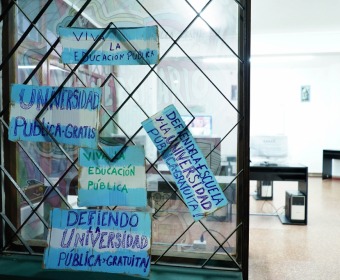 VIVA
LA
EDUCACIÓN PÚBLICA
UNIVERSIDAD
PÚBLICA-GRATIS
DEFENDER LA ESCUELA
Y LA UNIVERSIDAD
PÚBLICA Y GRATUITA!
VIVA LA
EDUCACIÓN
PÚBLICA
DEFIENDO
LA
UNIVERSIDAD
PÚBLICA Y GRATUITA!